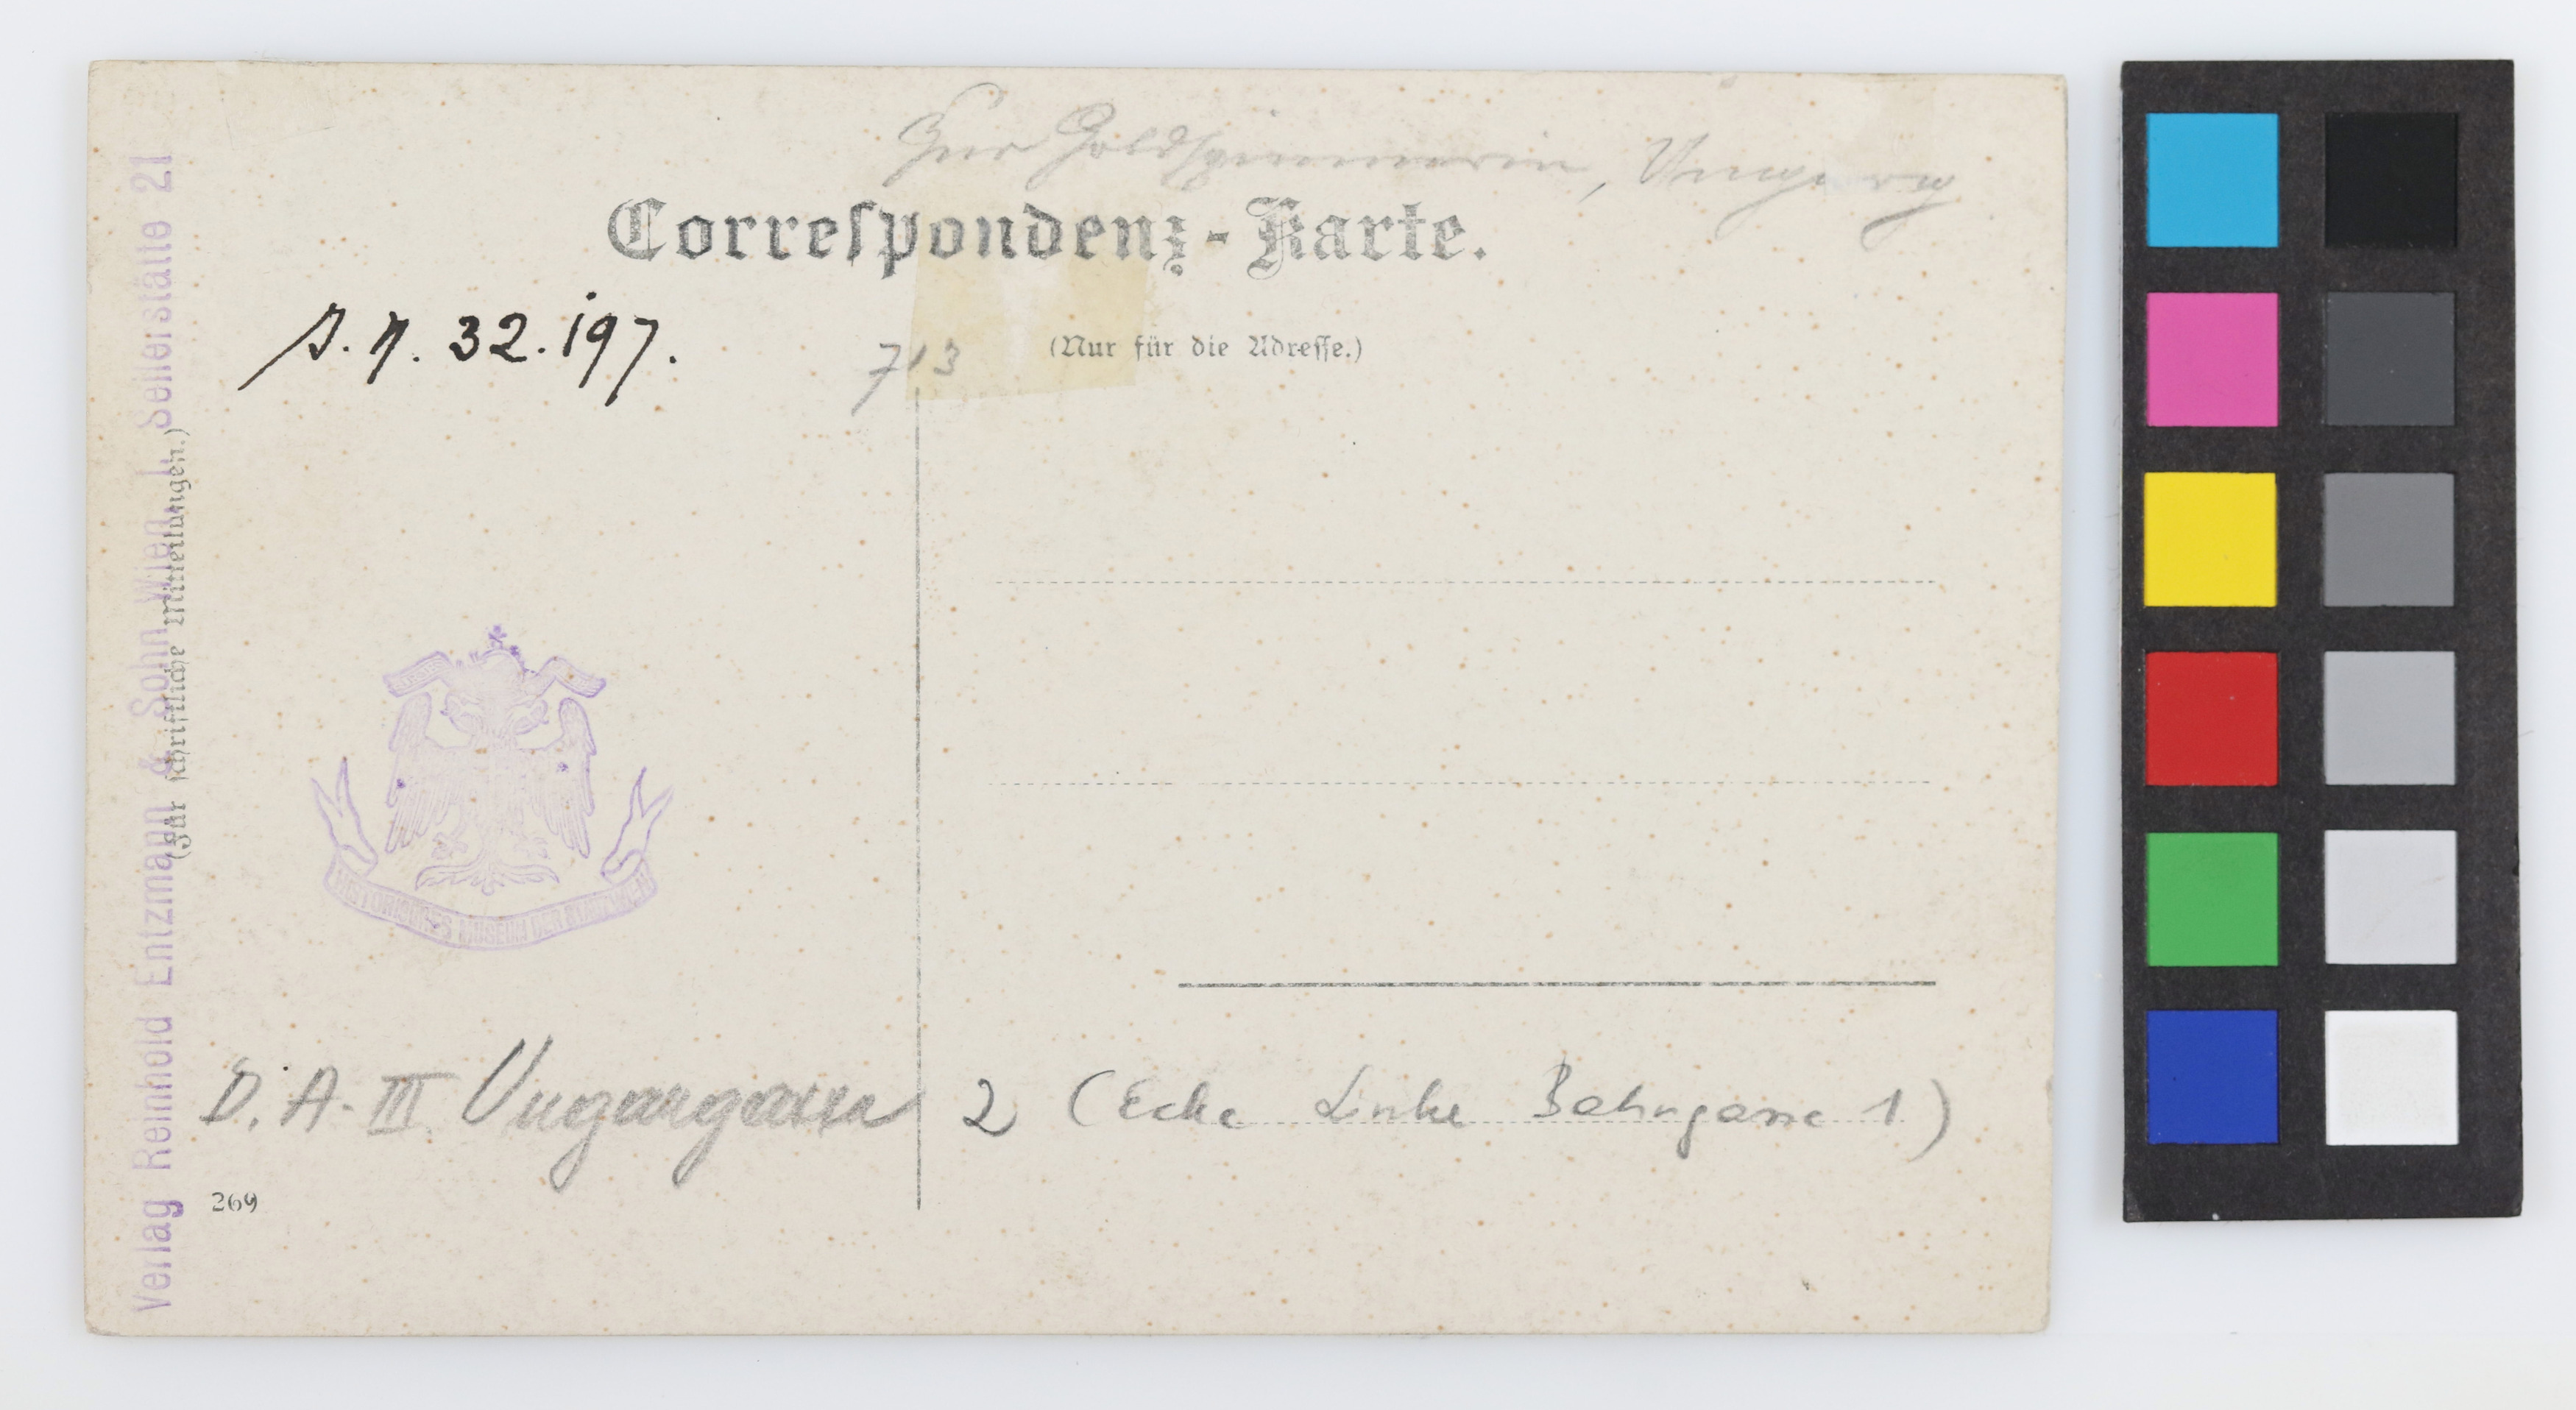 Zur Goldspinnerin, Ungerg
Correſpondenz-Karte.
J. N. 32.197.
713
(Nur für die Adreſſe.)
Verlag Reinhold Entzmann & Sohn Wien, I., Seilerstätte 21
(Für ſchriftliche Mitteilungen.)
HISTORISCHES MUSEUM DER STADT WIEN
D. A. III. Ungargasse 2 (Ecke Linke Bahngasse 1)
269